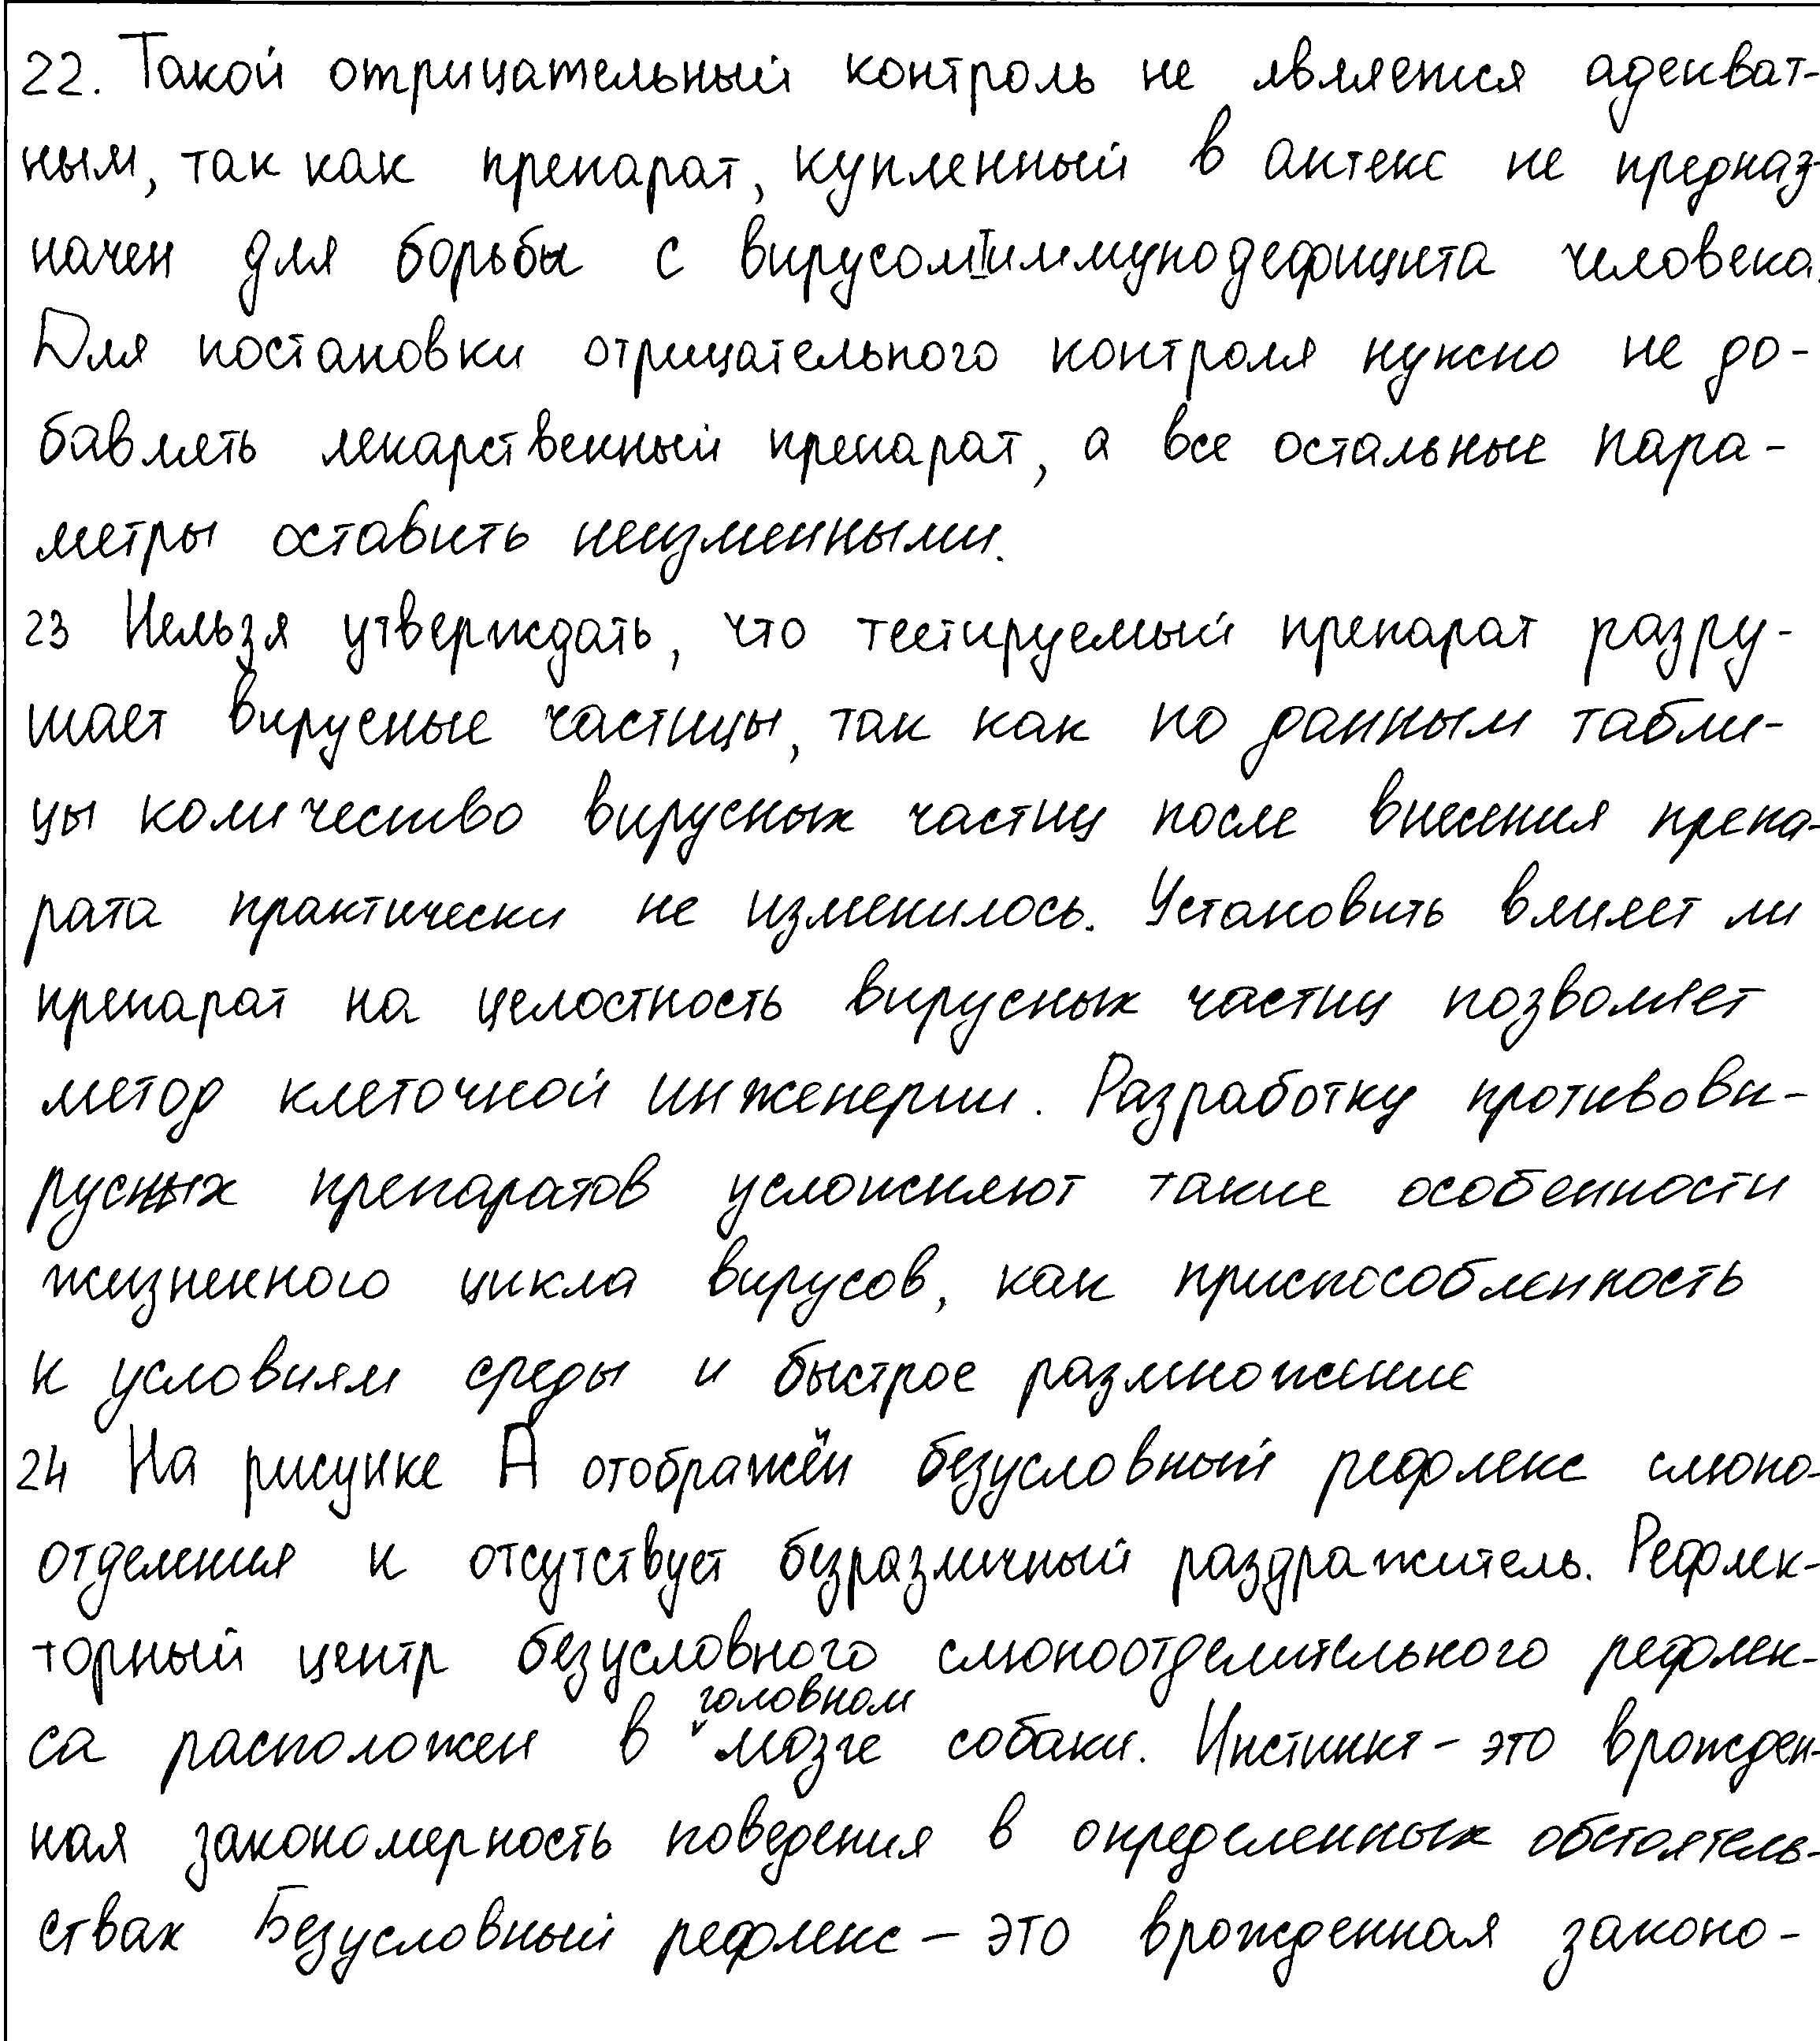 22. Такой отрицательный контроль не является адекват-
ным, так как препарат, купленный в аптеке не предназ-
начен для борьбы с вирусом иммунодефицита человека.
Для постановки отрицательного контроля нужно не до-
бавлять лекарственный препарат, а все остальные пара-
метры оставить неизменными.
23 Нельзя утверждать, что тестируемый препарат разру-
шает вирусные частицы, так как по данным табли-
цы количество вирусных частиц после внесения препа-
рата практически не изменилось. Установить влияет ли
препарат на целостность вирусных частиц позволяет
метод клеточной инженерии. Разработку противови-
русных препаратов усложняют такие особенности
жизненного цикла вирусов, как приспособленность
к условиям среды и быстрое размножение
24 На рисунке А отображён безусловный рефлекс слюно-
отделения и отсутствует безразличный раздражитель. Рефлек-
торный центр безусловного слюноотделительного рефлек-
са расположен в головном мозге собаки. Инстинкт - это врожден-
ная закономерность поведения в определенных обстоятель-
ствах Безусловный рефлекс - это врожденная законо-